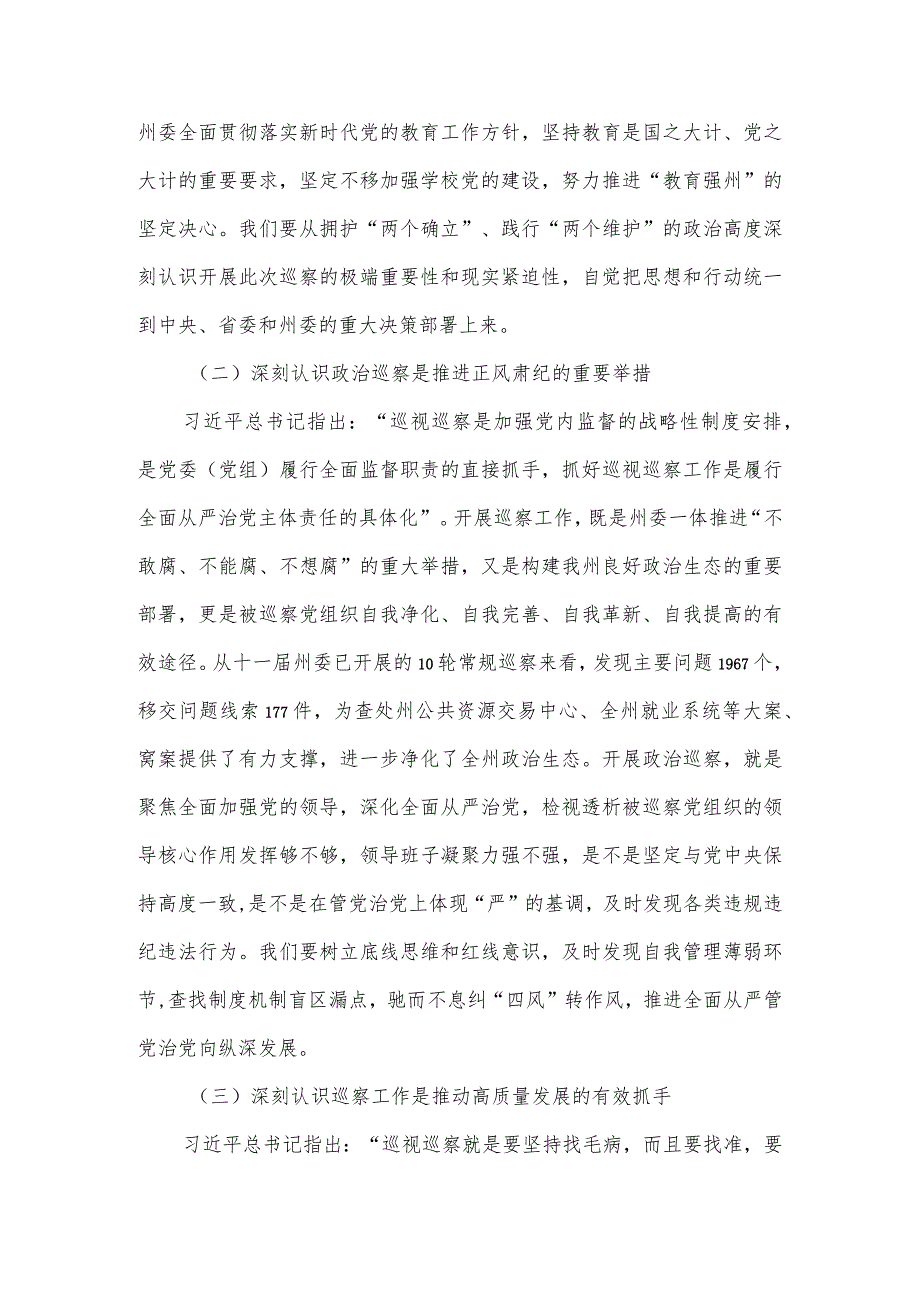 州委全面贯彻落实新时代党的教育工作方针，坚持教育是国之大计、党之
大计的重要要求，坚定不移加强学校党的建设，努力推进“教育强州”的
坚定决心。我们要从拥护“两个确立”、践行“两个维护”的政治高度深
刻认识开展此次巡察的极端重要性和现实紧迫性，自觉把思想和行动统一
到中央、省委和州委的重大决策部署上来。
（二）深刻认识政治巡察是推进正风肃纪的重要举措
习近平总书记指出：“巡视巡察是加强党内监督的战略性制度安排，
是党委（党组）履行全面监督职责的直接抓手，抓好巡视巡察工作是履行
全面从严治党主体责任的具体化”。开展巡察工作，既是州委一体推进“不
敢腐、不能腐、不想腐”的重大举措，又是构建我州良好政治生态的重要
部署，更是被巡察党组织自我净化、自我完善、自我革新、自我提高的有
效途径。从十一届州委已开展的10轮常规巡察来看，发现主要问题1967个，
移交问题线索177件，为查处州公共资源交易中心、全州就业系统等大案、
窝案提供了有力支撑，进一步净化了全州政治生态。开展政治巡察，就是
聚焦全面加强党的领导，深化全面从严治党，检视透析被巡察党组织的领
导核心作用发挥够不够，领导班子凝聚力强不强，是不是坚定与党中央保
持高度一致,是不是在管党治党上体现“严”的基调，及时发现各类违规违
纪违法行为。我们要树立底线思维和红线意识，及时发现自我管理薄弱环
节,查找制度机制盲区漏点，驰而不息纠“四风”转作风，推进全面从严管
党治党向纵深发展。
（三）深刻认识巡察工作是推动高质量发展的有效抓手
习近平总书记指出：“巡视巡察就是要坚持找毛病，而且要找准，要